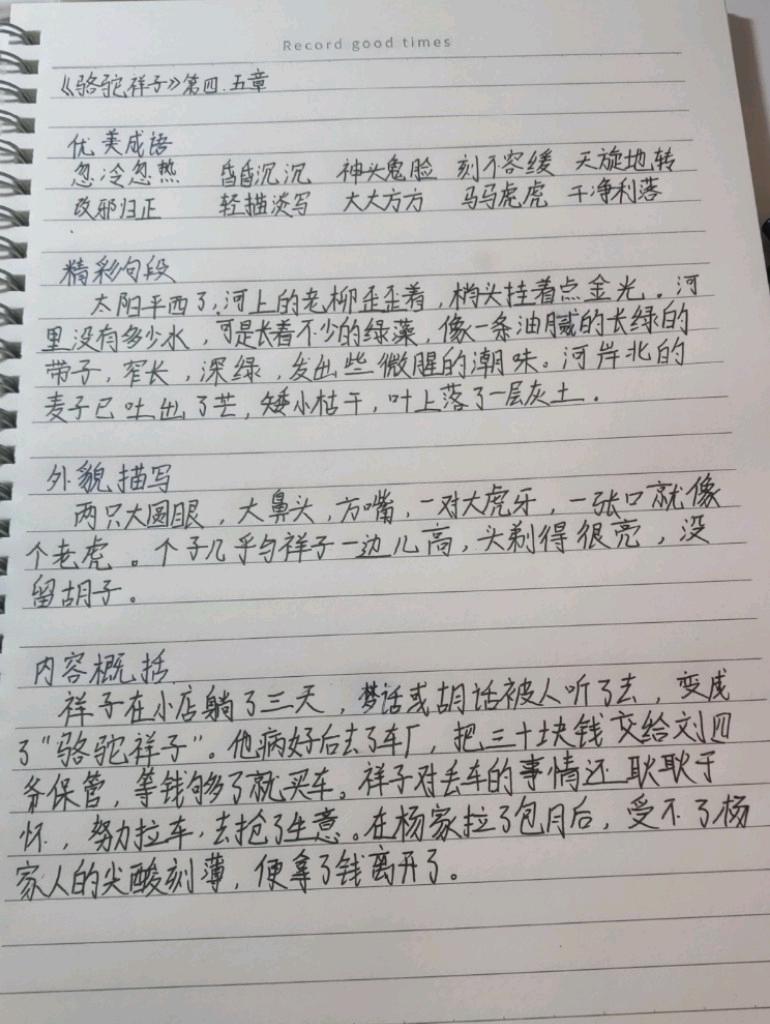 Record good times
《骆驼祥子》第四.五章
优美成语
忽冷忽热 昏昏沉沉 神头鬼脸 刻不容缓 天旋地转
改邪归正 轻描淡写 大大方方 马马虎虎 干净利落
精彩句段
太阳平西了,河上的老柳歪歪着,梢头挂着点金光。河
里没有多少水,可是长着不少的绿藻,像一条油腻的长绿的
带子,窄长,深绿,发出些微腥的潮味。河岸北的
麦子已吐出了芒,矮小枯干,叶上落了一层灰土。
外貌描写
两只大圆眼,大鼻头,方嘴,一对大虎牙,一张口就像
个老虎。个子几乎与祥子一边儿高,头剃得很亮,没
留胡子。
内容概括
祥子在小店躺了三天,梦话或胡话被人听了去,变成
了“骆驼祥子”。他病好后去了车厂,把三十块钱交给刘四
爷保管,等钱够了就买车。祥子对丢车的事情还耿耿于
怀,努力拉车,去抢了生意。在杨家拉了包月后,受不了杨
家人的尖酸刻薄,便拿了钱离开了。